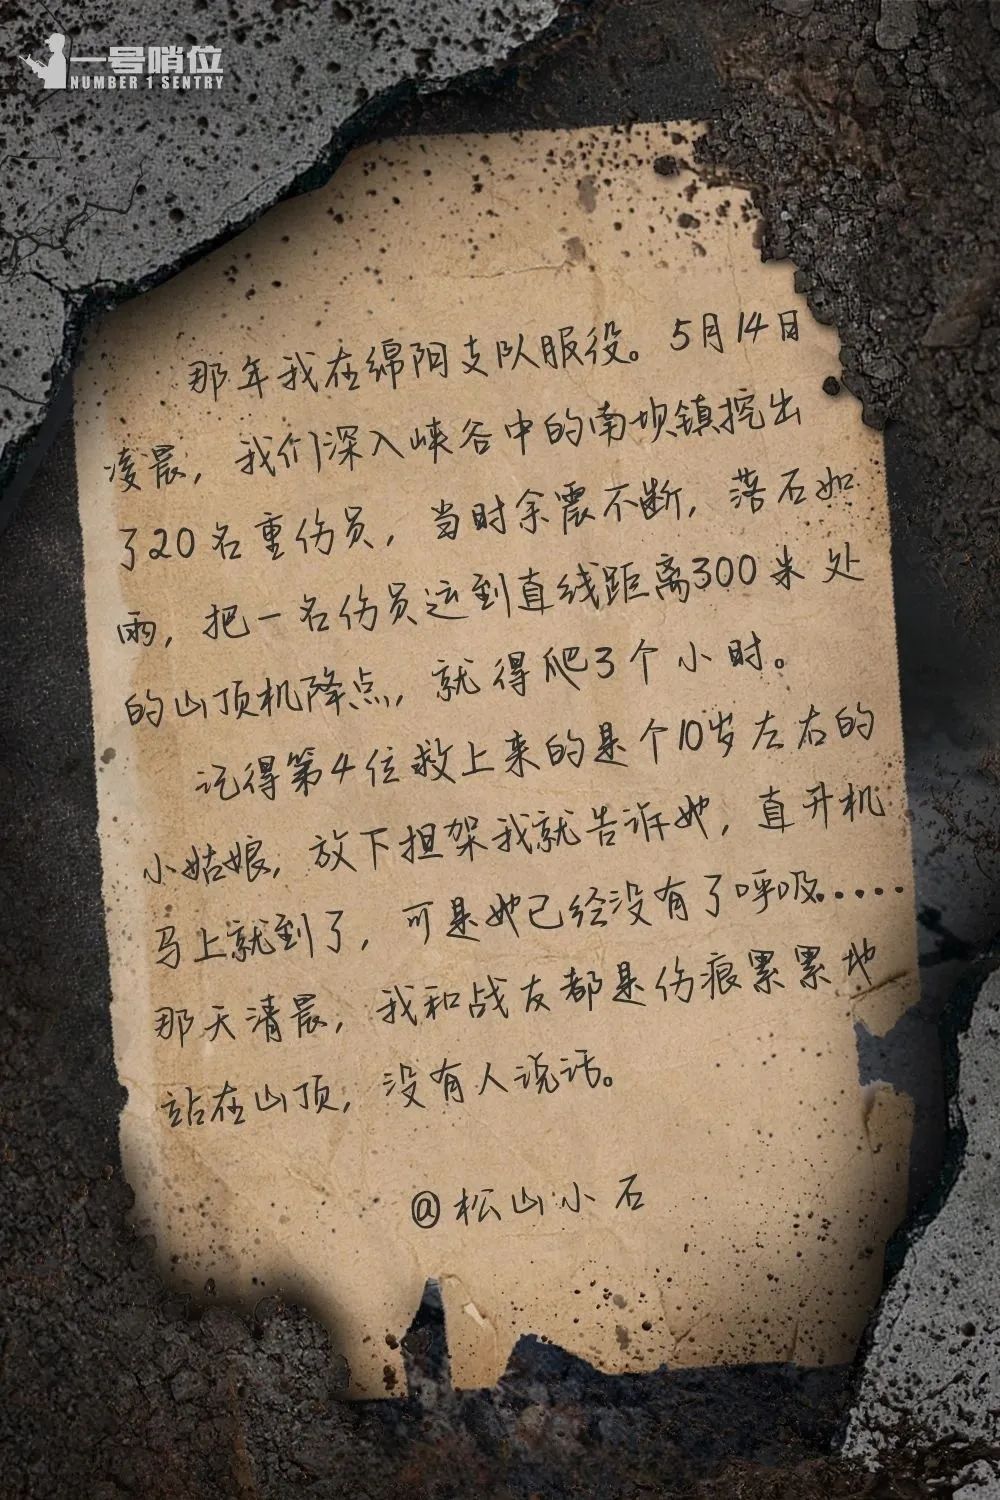 一号哨位
NUMBER 1 SENTRY
那年我在绵阳支队服役。5月14日
凌晨，我们深入峡谷中的南坝镇挖出
了20名重伤员，当时余震不断，落石如
雨，把一名伤员运到直线距离300米处
的山顶机降点，就得爬3个小时。
记得第4位救上来的是个10岁左右的
小姑娘，放下担架我就告诉她，直升机
马上就到了，可是她已经没有了呼吸....
那天清晨，我和战友都是伤痕累累地
站在山顶，没有人说话。
@松山小石